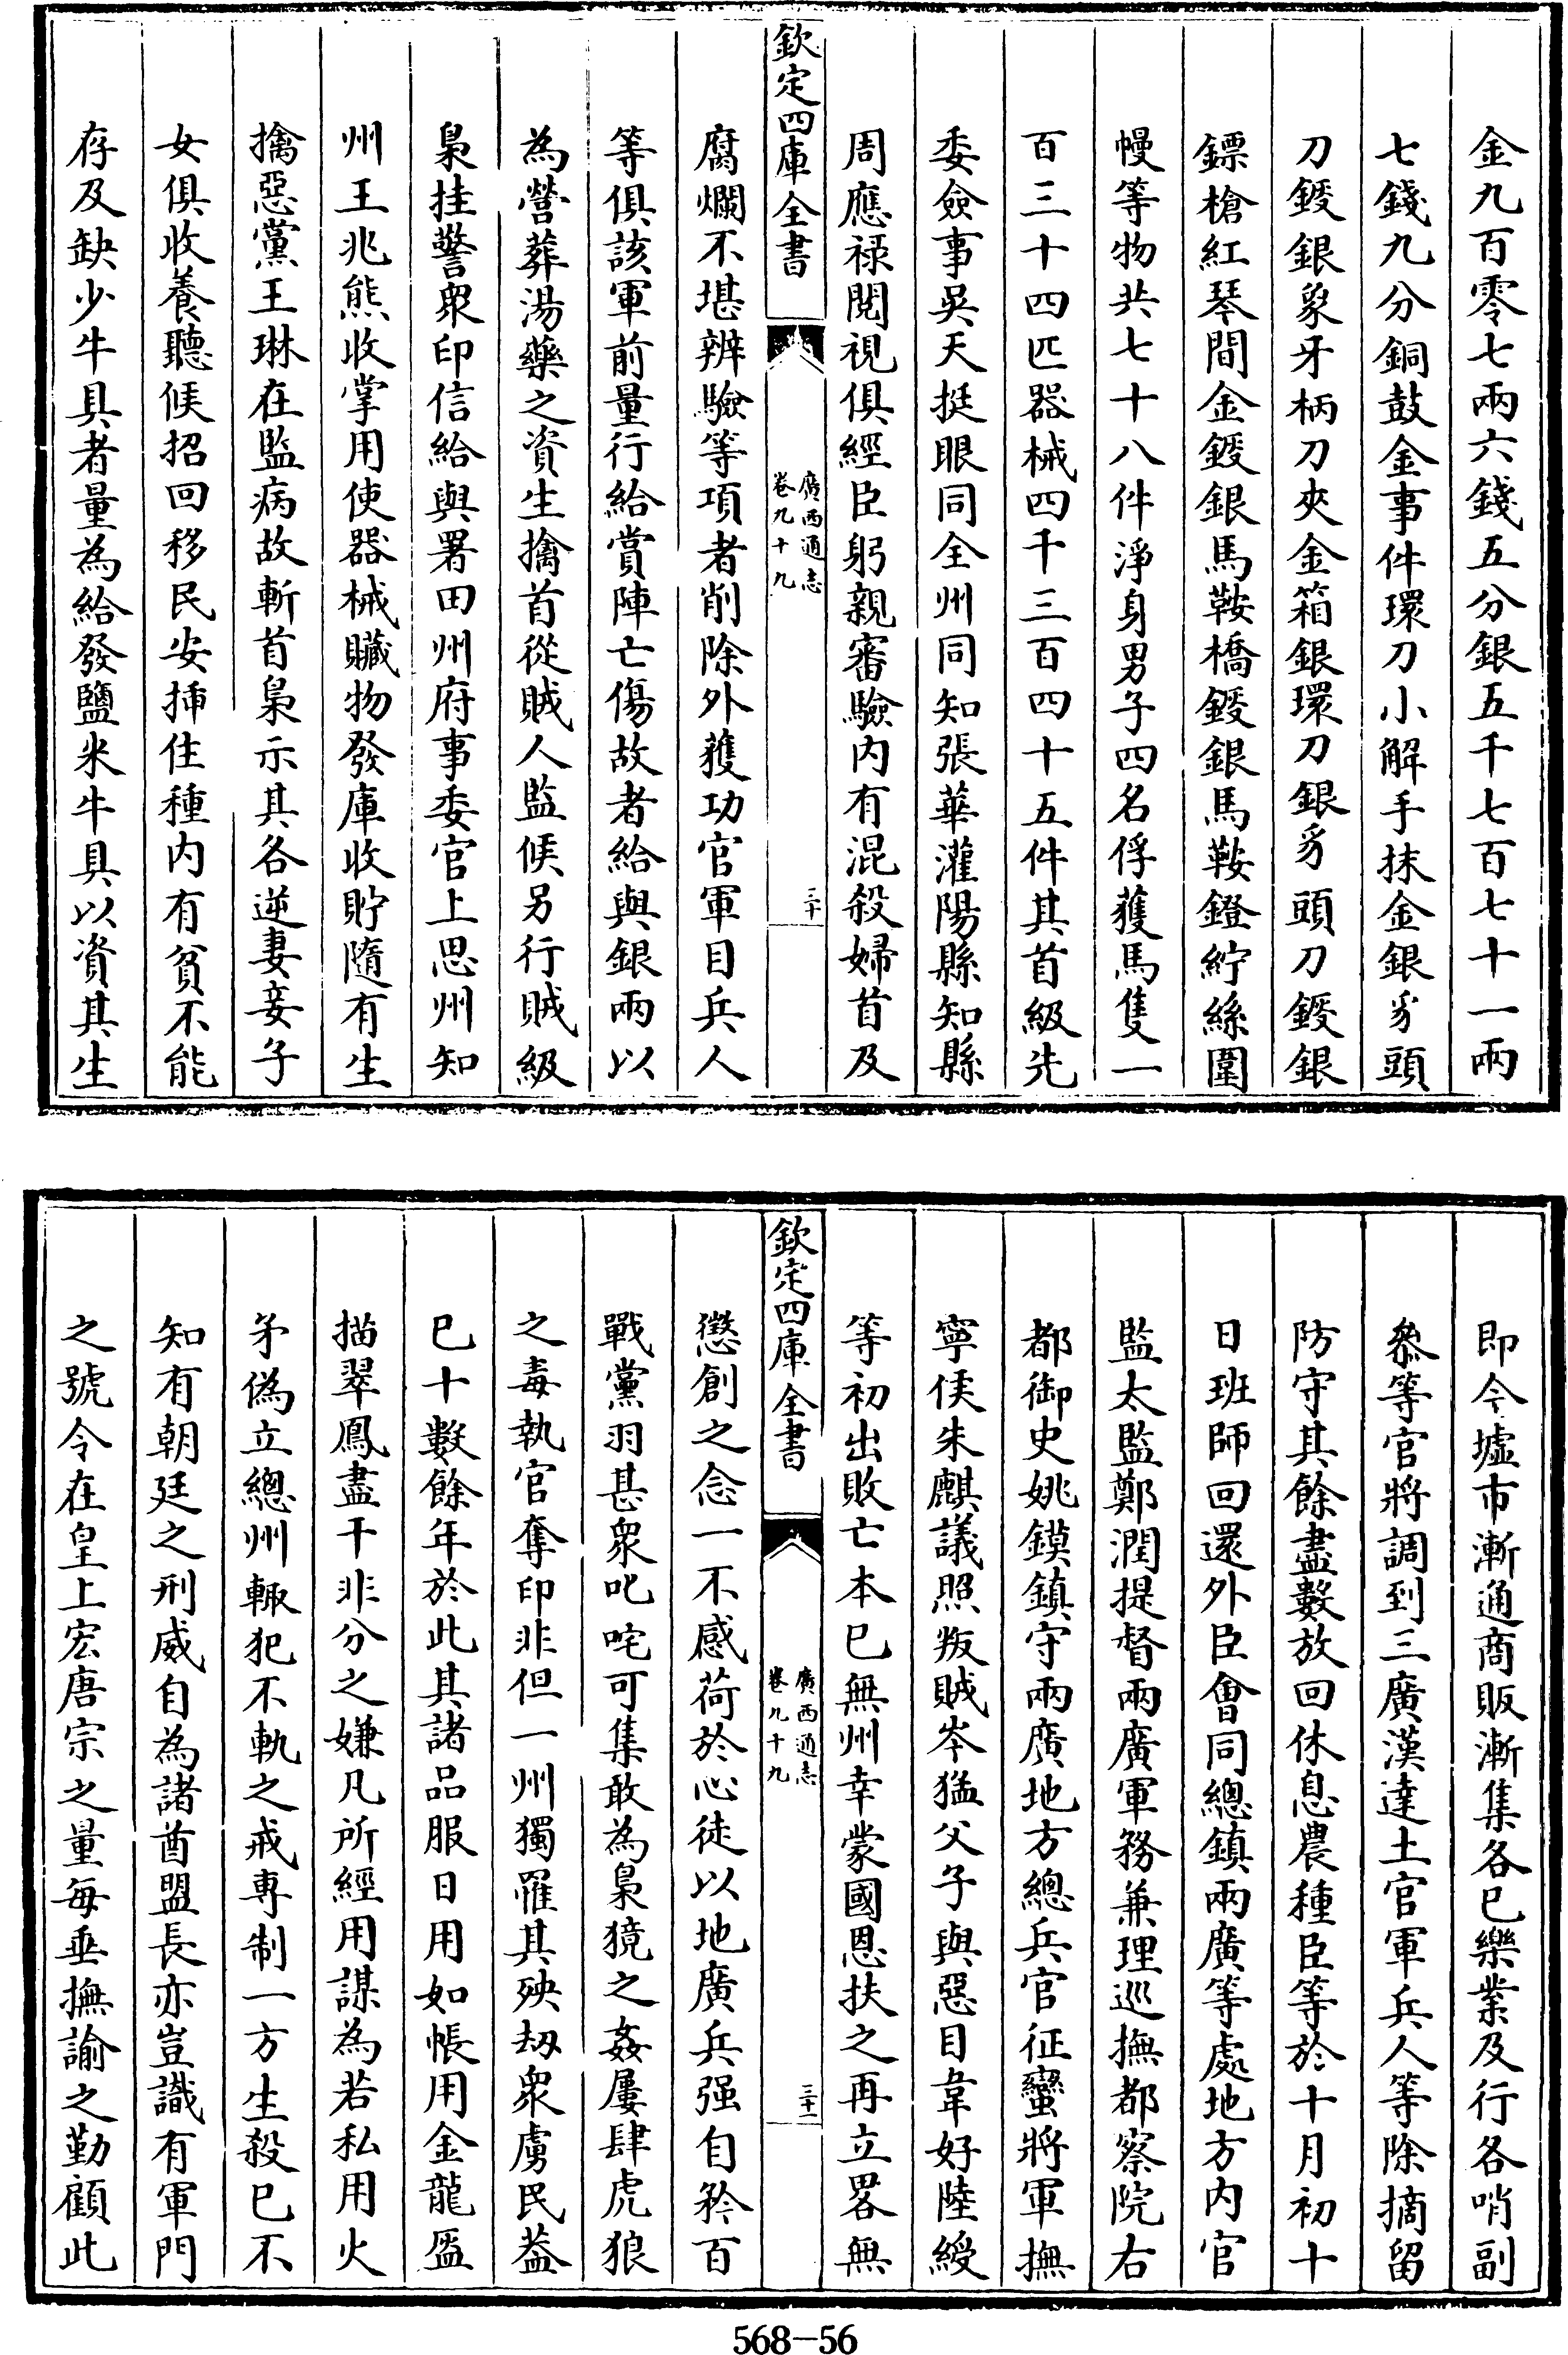 金九百零七兩六錢五分銀五千七百七十一兩
七錢九分銅鼓金事件環刀小解手抹金銀豸頭
刀鋄銀象牙柄刀夾金箱銀環刀銀豸頭刀鋄銀
鏢槍紅琴間金鋄銀馬鞍橋鋄銀馬鞍鐙紵絲圍
幔等物共七十八件淨身男子四名俘獲馬隻一
百三十四匹器械四千三百四十五件其首級先
委僉事吳天挺眼同全州同知張華灌陽縣知縣
周應禄閱視俱經臣躬親審驗内有混殺婦首及
欽定四庫全書
廣西通志
卷九十九
三十
腐爛不堪辨驗等項者削除外獲功官軍目兵人
等俱該軍前量行給賞陣亡傷故者給與銀兩以
為營葬湯藥之資生擒首從賊人監候另行賊級
梟挂警衆印信給與署田州府事委官上思州知
州王兆熊收掌用使器械贓物發庫收貯隨有生
擒惡黨王琳在監病故斬首梟示其各逆妻妾子
女俱收養聽候招回移民安揷住種内有貧不能
存及缺少牛具者量為給發鹽米牛具以資其生
即今墟市漸通商販漸集各已樂業及行各哨副
叅等官將調到三廣漢達土官軍兵人等除摘留
防守其餘盡數放回休息農種臣等於十月初十
日班師回還外臣會同總鎮兩廣等處地方内官
監太監鄭潤提督兩廣軍務兼理巡撫都察院右
都御史姚鏌鎮守兩廣地方總兵官征蠻將軍撫
寧侯朱麒議照叛賊岑猛父子與惡目韋好陸綬
等初出敗亡本已無州幸蒙國恩扶之再立畧無
欽定四庫全書
廣西通志
卷九十九
三十一
懲創之念一不感荷於心徒以地廣兵强自矜百
戰黨羽甚衆叱咤可集敢為梟獍之姦屢肆虎狼
之毒執官奪印非但一州獨罹其殃刼衆虜民葢
已十數餘年於此其諸品服日用如帳用金龍盔
描翠鳳盡干非分之嫌凡所經用謀為若私用火
矛偽立總州輙犯不軌之戒専制一方生殺已不
知有朝廷之刑威自為諸酋盟長亦豈識有軍門
之號令在皇上宏唐宗之量每垂撫諭之勤顧此
568-56